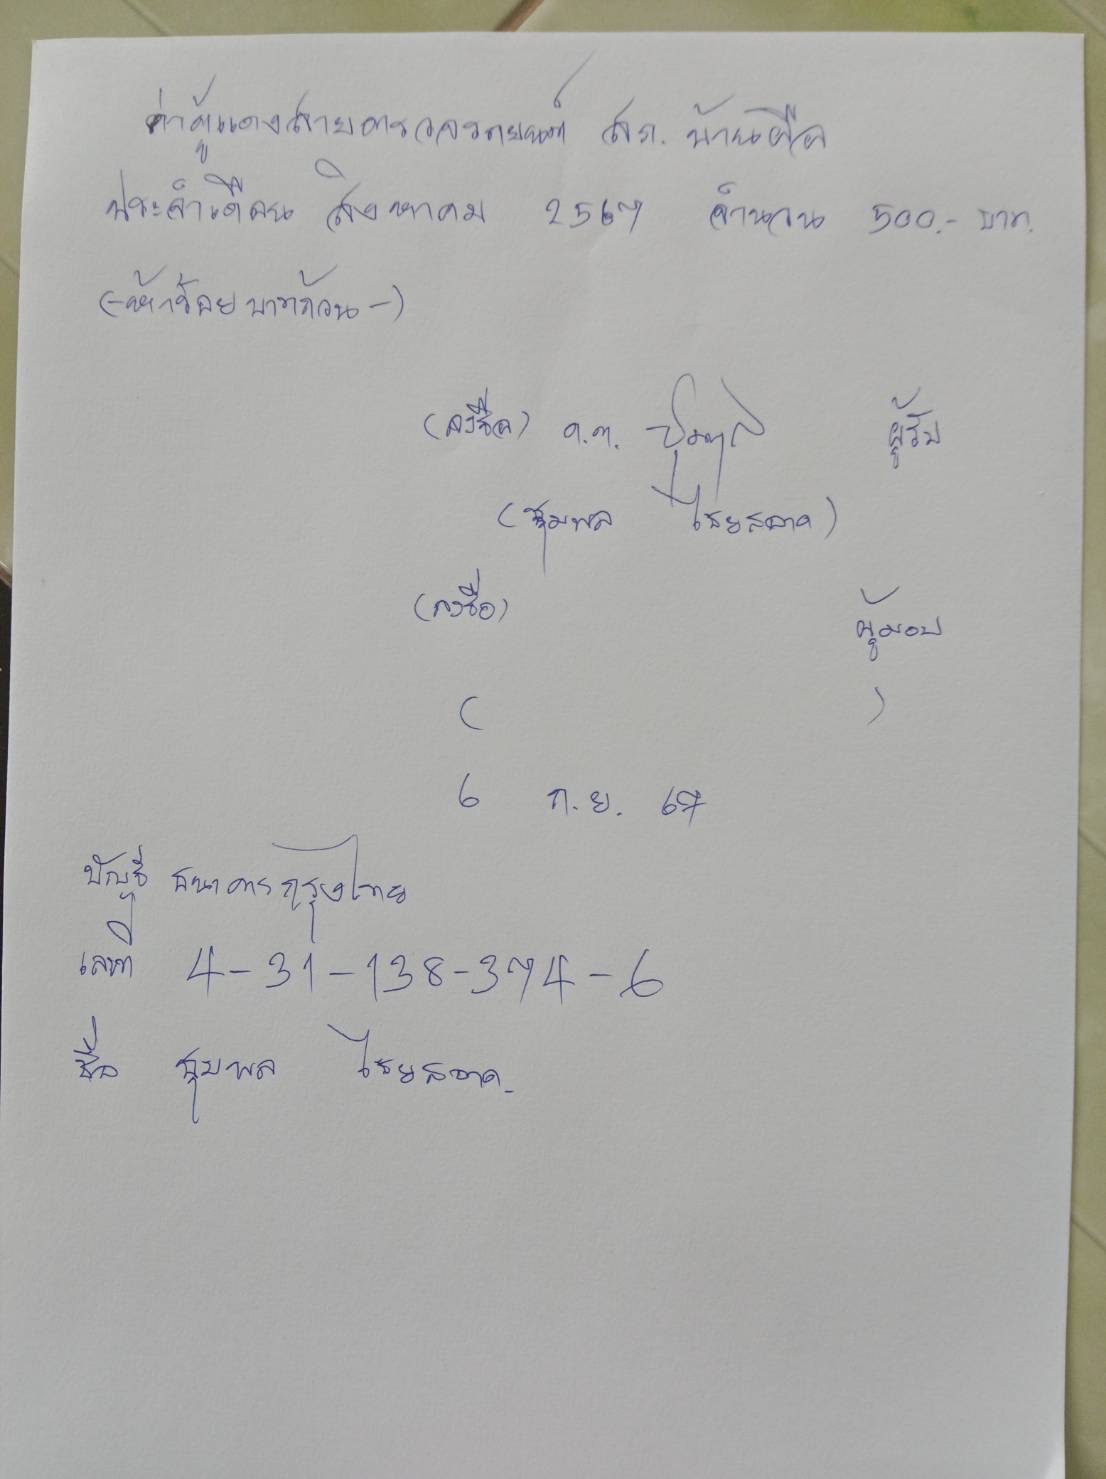 ค่าตู้แดงสายตรวจรถยนต์ สภ. บ้านผือ
ประจำเดือน สิงหาคม 2567 จำนวน 500.- บาท.
(-ห้าร้อยบาทถ้วน-)
(ลงชื่อ) ด.ต. ชุมพล ผู้รับ
(ชุมพล ไชยสอาด)
(ลงชื่อ) ผู้มอบ
( )
6 ก.ย. 67
บัญชี ธนาคารกรุงไทย
เลขที่ 4-31-138-374-6
ชื่อ ชุมพล ไชยสอาด.